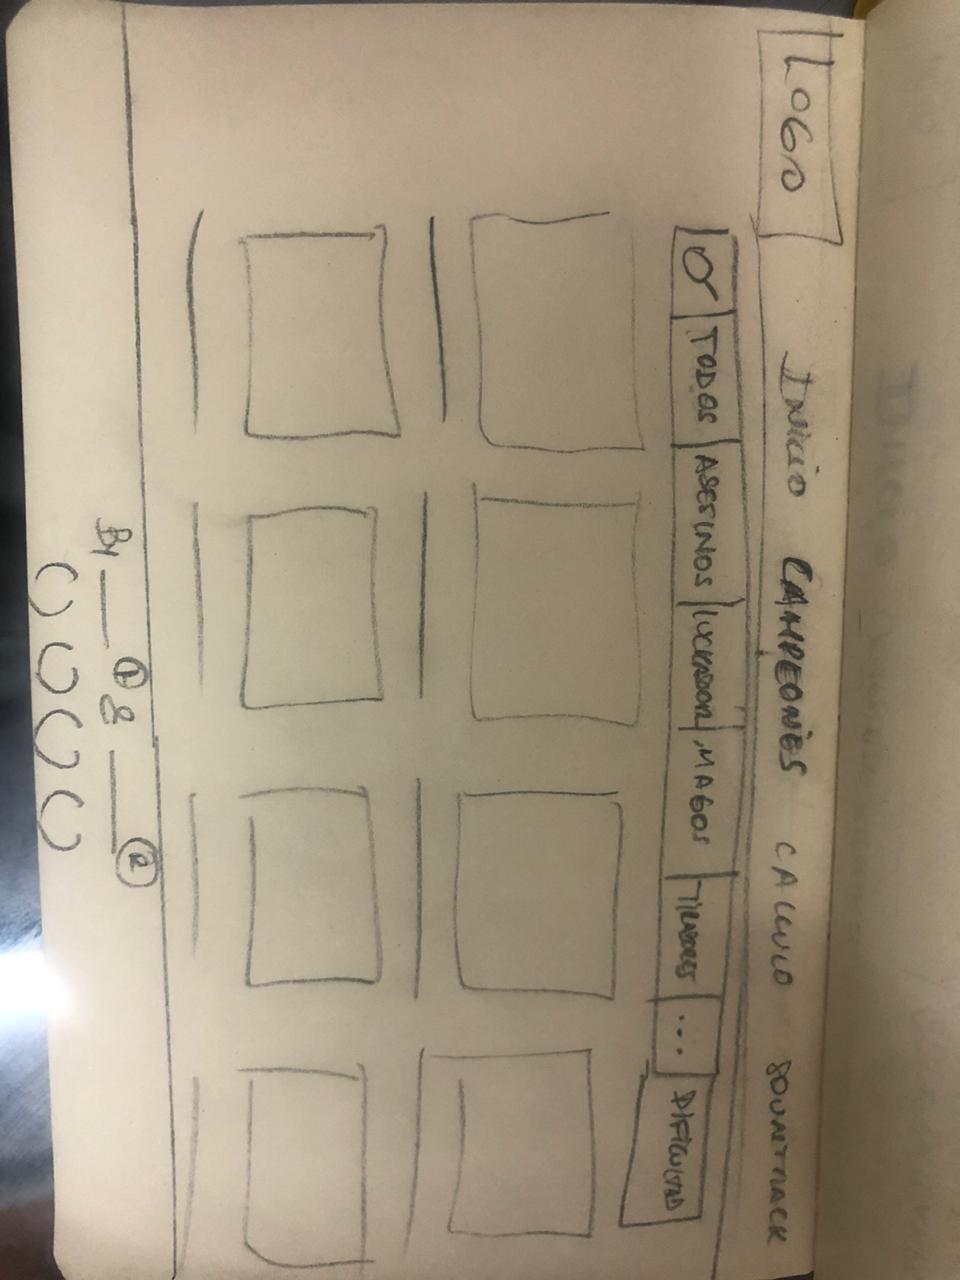 LOGO INICIO CAMPEONES CALCULO SOUNTRACK
TODOS ASESINOS LUCHADOR MAGOS TIRADORES ... DIFICULTAD
By ____ ® & ____ ®